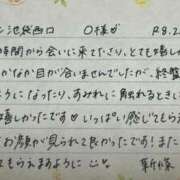 池袋西口 O様 R8.2
時間から会いに来て下さり、とても嬉し
かなか目が合いませんでしたが、終盤
ようになったり、あそれに触れるときし
嬉しかったです いっぱい感じてもらえ
お顔が見られて良かったです! また
てもらえますように 新條